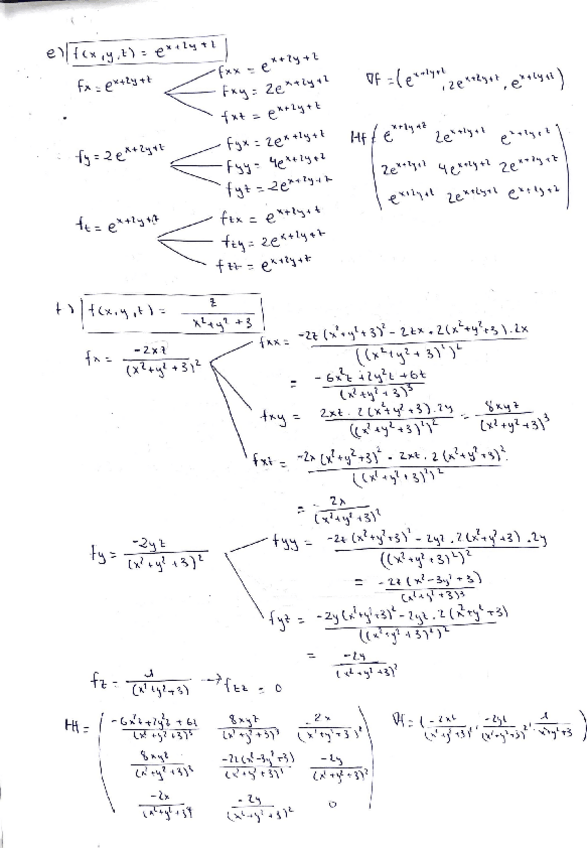 e) f(x,y,z) = e^{x+2y+z}
fx = e^{x+2y+z}
fxx = e^{x+2y+z}
fxy = 2e^{x+2y+z}
fxz = e^{x+2y+z}
∇f = (e^{x+2y+z}, 2e^{x+2y+z}, e^{x+2y+z})
fy = 2e^{x+2y+z}
fyx = 2e^{x+2y+z}
fyy = 4e^{x+2y+z}
fyz = 2e^{x+2y+z}
Hf
e^{x+2y+z} 2e^{x+2y+z} e^{x+2y+z}
2e^{x+2y+z} 4e^{x+2y+z} 2e^{x+2y+z}
e^{x+2y+z} 2e^{x+2y+z} e^{x+2y+z}
fz = e^{x+2y+z}
fzx = e^{x+2y+z}
fzy = 2e^{x+2y+z}
fzz = e^{x+2y+z}
f) f(x,y,z) = z / (x²+y²+3)
fx = -2xz / (x²+y²+3)²
fxx = -2z(x²+y²+3)² - 2zx·2(x²+y²+3)·2x / ((x²+y²+3)²)²
= -6x²z+2y²z+6z / (x²+y²+3)³
fxy = 2xz·2(x²+y²+3)·2y / ((x²+y²+3)²)² = 8xyz / (x²+y²+3)³
fxz = -2x(x²+y²+3)² - 2xz·2(x²+y²+3)² / ((x²+y²+3)²)²
= -2x / (x²+y²+3)²
fy = -2yz / (x²+y²+3)²
fyy = -2z(x²+y²+3)² - 2yz·2(x²+y²+3)·2y / ((x²+y²+3)²)²
= -2z(x²-3y²+3) / (x²+y²+3)³
fyz = -2y(x²+y²+3)² - 2yz·2(x²+y²+3) / ((x²+y²+3)²)²
= -2y / (x²+y²+3)²
fz = 1 / (x²+y²+3) → fzz = 0
Hf =
-6x²z+2y²z+6z / (x²+y²+3)³ 8xyz / (x²+y²+3)³ -2x / (x²+y²+3)²
8xyz / (x²+y²+3)³ -2z(x²-3y²+3) / (x²+y²+3)³ -2y / (x²+y²+3)²
-2x / (x²+y²+3)² -2y / (x²+y²+3)² 0
∇f = (-2xz / (x²+y²+3)², -2yz / (x²+y²+3)², 1 / x²+y²+3)